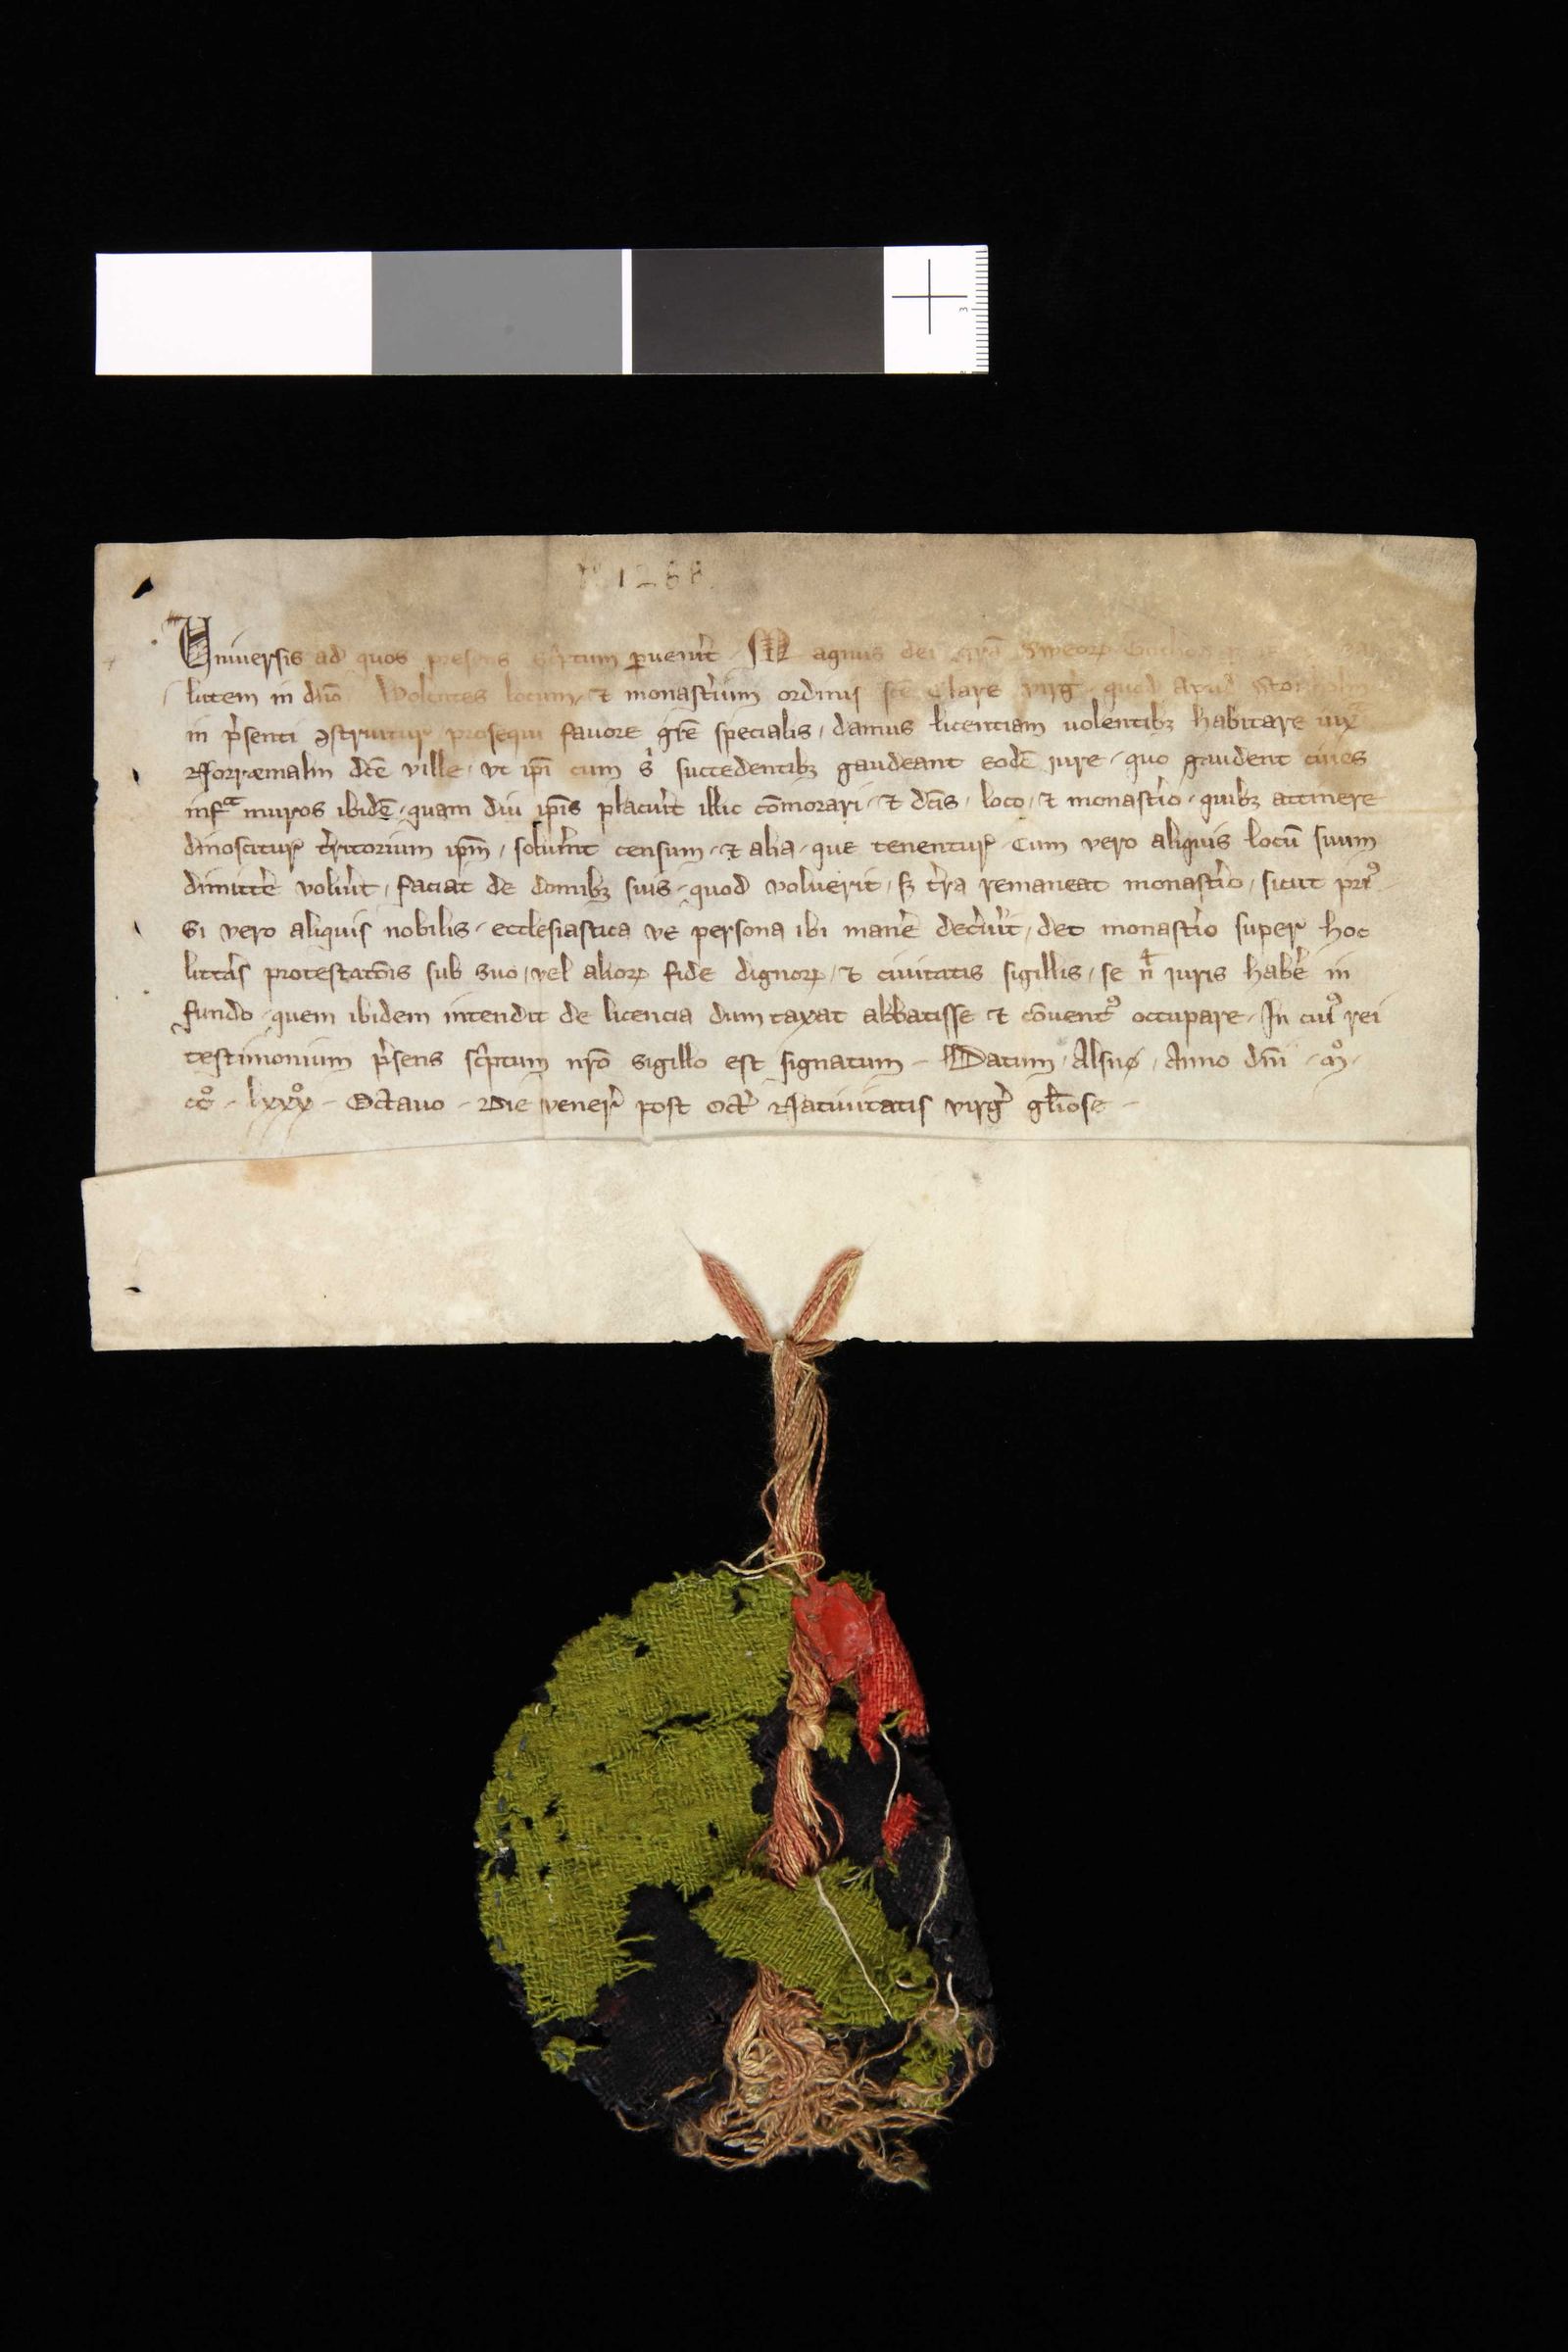 1288
Uniuersis ad quos presens sc'ptum ꝑuen'it Magnus dei gr̄a Sweoꝝ
lutem in dn̄o Volentes locum ⁊ monast'ium ordinis sc̄e Clare virg' quod apud Stokholm
in p'senti ꝯstruitur prosequi fauore gr̄e specialis, damus licentiam uolentibꝫ habitare iuxᵃ
Norræmalm dc̄e ville, vt ip̄i cum s' succedentibꝫ gaudeant eodē iure quo gaudent ciues
infᵃ muros ibidē quam diu ip̄is placu'it illic cōmorari ⁊ dc̄is, loco, ⁊ monast'io quibꝫ attinere
dinoscitur t'ritorium ip̄m, solu'int censum ⁊ alia que tenentur. Cum vero aliquis locū suum
dimitt'e volu'it, faciat de domibꝫ suis quod voluerit, sꝫ t'ra remaneat monast'io, sicut pri⁹
Si vero aliquis nobilis ecclesiastica ve persona ibi man'e decreu'it, det monast'io super hoc
litt'as protestatōis sub suo, vel alioꝝ fide dignoꝝ, ⁊ ciuitatis sigillis, se n̄ iuris hab'e in
fundo quem ibidem intendit de licencia dum taxat abbatisse ⁊ cōuent⁹ occupare. In cui⁹ rei
testimonium p'sens sc'ptum nr̄o sigillo est signatum - Datum Alsnø, Anno dn̄i m̊
cc̊ - lxxx̊ - Octauo - Die vener' post oct' Natiuitatis virg' gl̄iose -
3